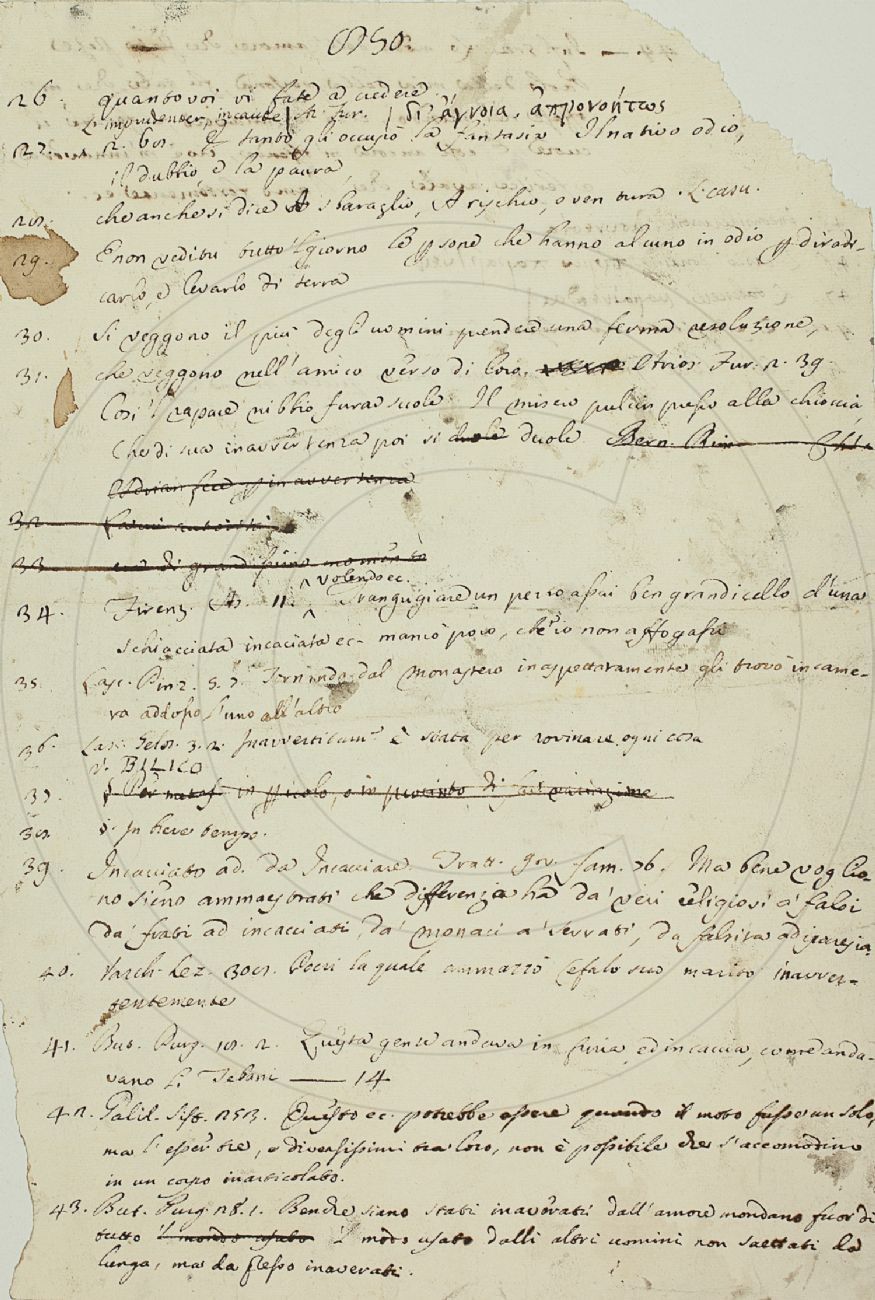 26. quanto voi vi fate a credere
L. imprudenter, incaute | Ar. Fur. | δι' ἄγνοια, ἀπρονοήτως
27. 2. 68. E tanto gli occupò la fantasia Il nativo odio,
il dubbio, e la paura,
28. che anche si dice A sbaraglio, A rischio, o ven tura. L. casu.
29. E non veditu tutto 'l giorno le psone che hanno alcuno in odio p diradi-
carlo, e levarlo di terra
30. Si veggono il più degli uomini prendere una ferma resoluzione,
31. che veggono nell'amico verso di loro. Arios. Fur. 2. 39.
Così 'l rapace nibbio furar suole Il misero pulcin presso alla chioccia,
Che di sua inavvertenza poi si duole duole Bern. Rim
p inavvertenza
32
33 di grandissimo momento
volendo ec.
34. Firenz. As. 11. Trangugiare un pezzo assai ben grandicello d'una
schiacciata incaciata ec. mancò poco, che io non affogassi
35. Lasc. Pinz. 5. 7. Tornando dal monastero inaspettatamente gli trovò in came-
ra addosso l'uno all'altro
36. Las. Gelos. 3. 2. Inavverticum.ᵃ è stata per rovinare ogni cosa
v. BILICO
37. § Per metaf. in picolo, o in procinto di
38. §. In breve tempo.
39. Incacciato ad. da Incacciare. Tratt. gov. fam. 76. Ma bene voglio-
no sieno ammaestrati che differenza ha da' veri religiosi a' falsi
da' frati ad incacciati, da' monaci a' serrati, da falsità ad
40. Varch. Lez. 308. Pocri la quale ammazzò Cefalo suo marito inavver-
tentemente
41. But. Purg. 18. 2. Questa gente andava in furia, ed in caccia, come anda-
vano li Tebani —— 14
42. Galil. Sist. 253. Questo ec. potrebbe essere quando il moto fusse un solo,
ma l'esser tre, e diversissimi tra loro, non è possibile che s'accomodino
in un corpo inarticolato.
43. But. Purg. 28. 1. Benche siano stati inaverati dall'amore mondano fuor di
tutto il mondo usato il modo usato dalli altri uomini non saettati da
lunga, ma da presso inaverati.